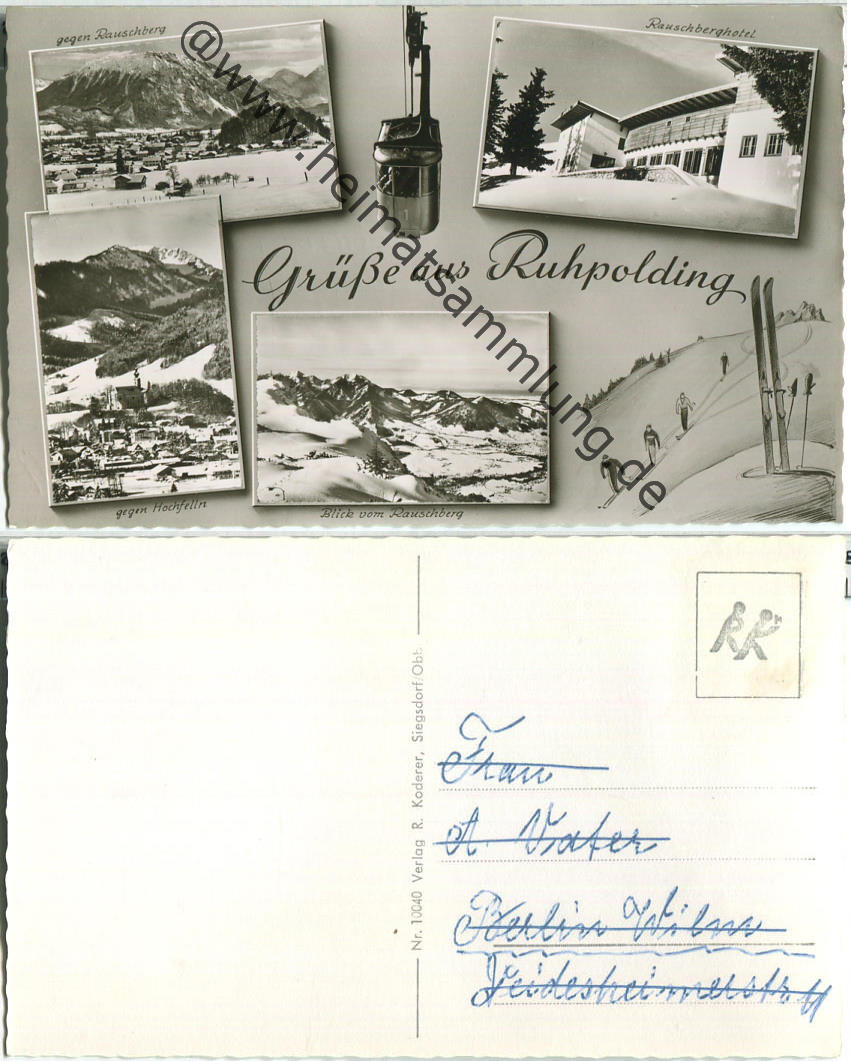 gegen Rauschberg
Rauschberghotel
1
@www.heimatsammlung.de
Grüße aus Ruhpolding
gegen Hochfelln
Blick vom Rauschberg
Nr. 10040 Verlag R. Koderer, Siegsdorf/Obb.
RK
Frau
A. Vater
Berlin Wilm